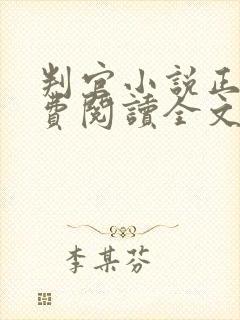 判官小說正
費閱讀全文
李某芬